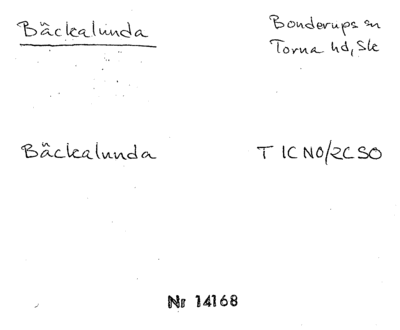 Bäckalunda
Bonderups sn
Torna hd, Sk
Bäckalunda
T 1C NO/2C SO
Nr 14168